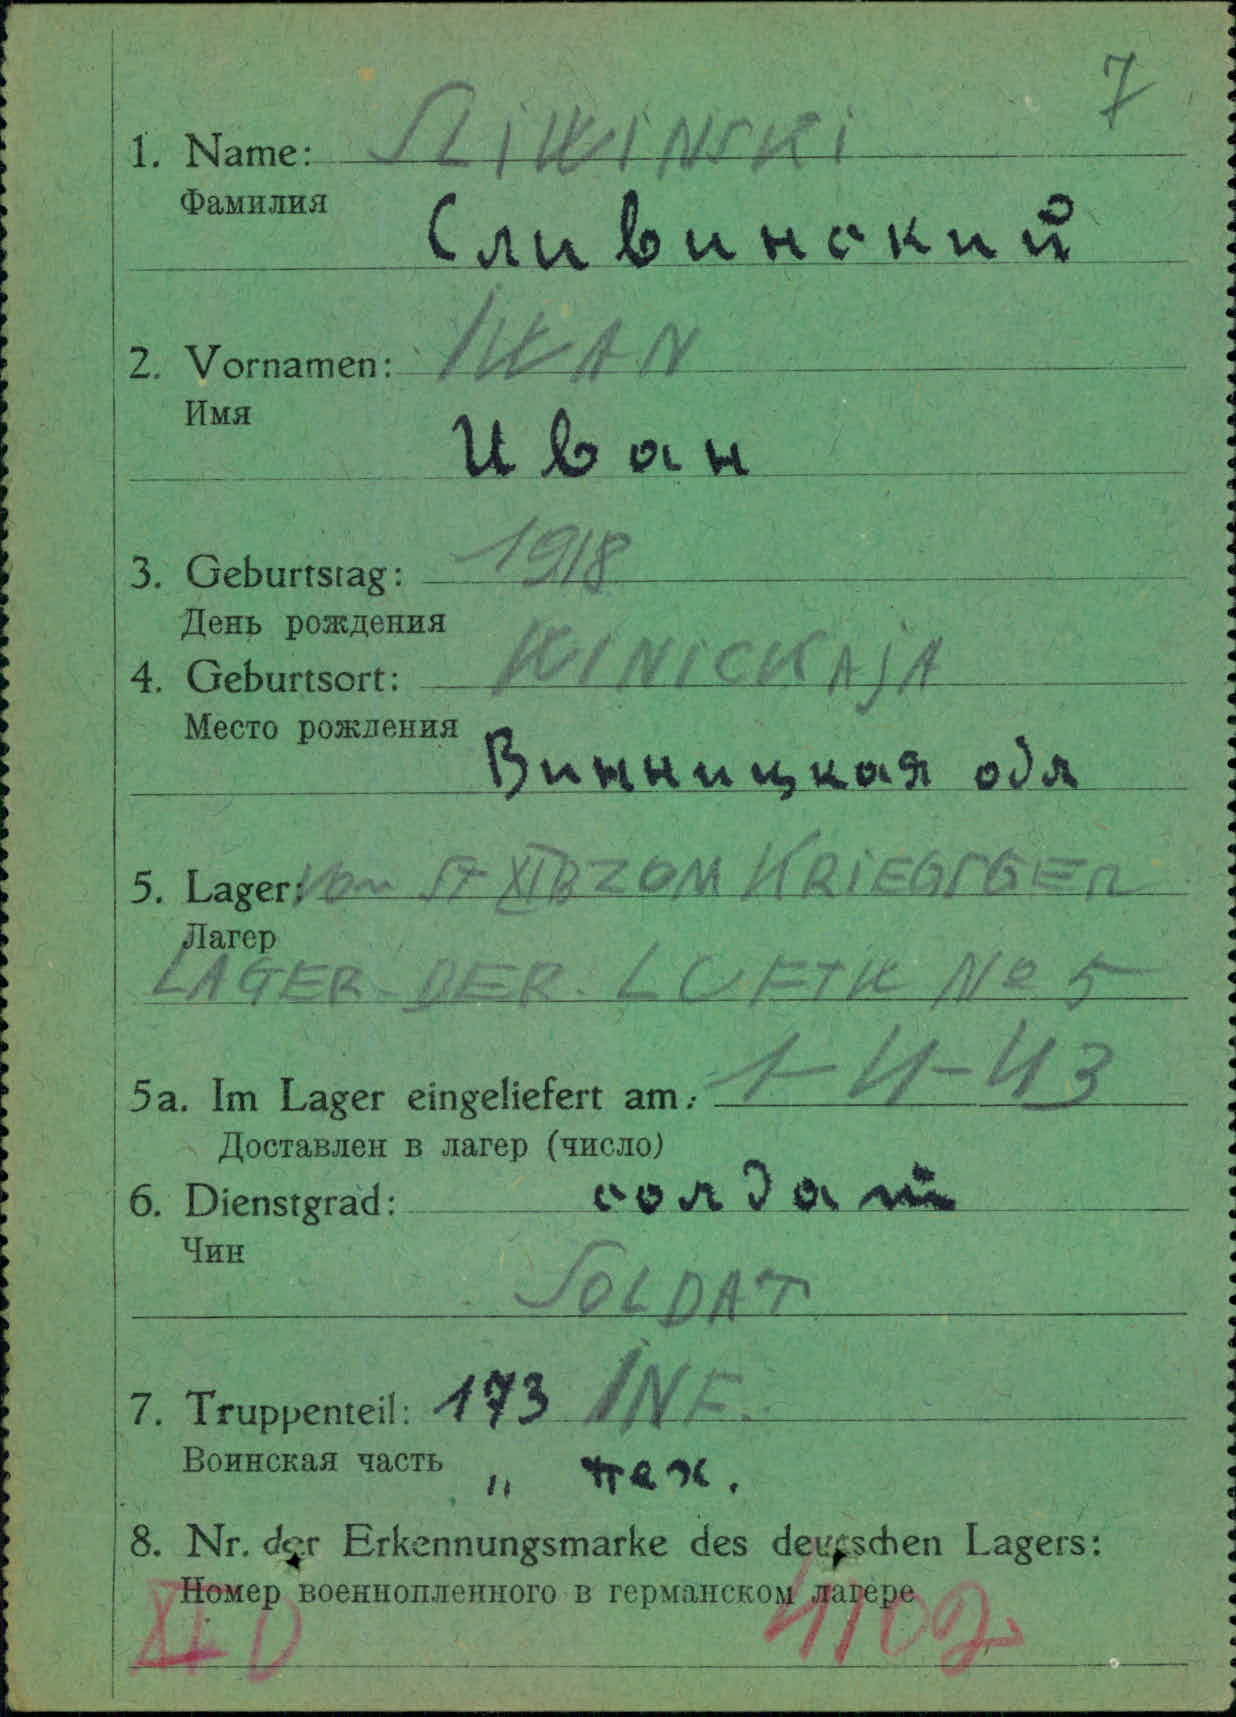 7
1. Name: SLIWINSKI
Фамилия
Сливинский
2. Vornamen: IWAN
Имя
Иван
3. Geburtstag: 1918
День рождения
4. Geburtsort: WINICKAJA
Место рождения
Винницкая обл
5. Lager: Von ST XIB ZOM KRIEGSGER
Лагер
LAGER DER LUFTW No 5
5a. Im Lager eingeliefert am: 1-4-43
Доставлен в лагер (число)
6. Dienstgrad: солдат
Чин
SOLDAT
7. Truppenteil: 173 INF.
Воинская часть " пех.
8. Nr. der Erkennungsmarke des deutschen Lagers:
Номер военнопленного в германском лагере
XI D 4102